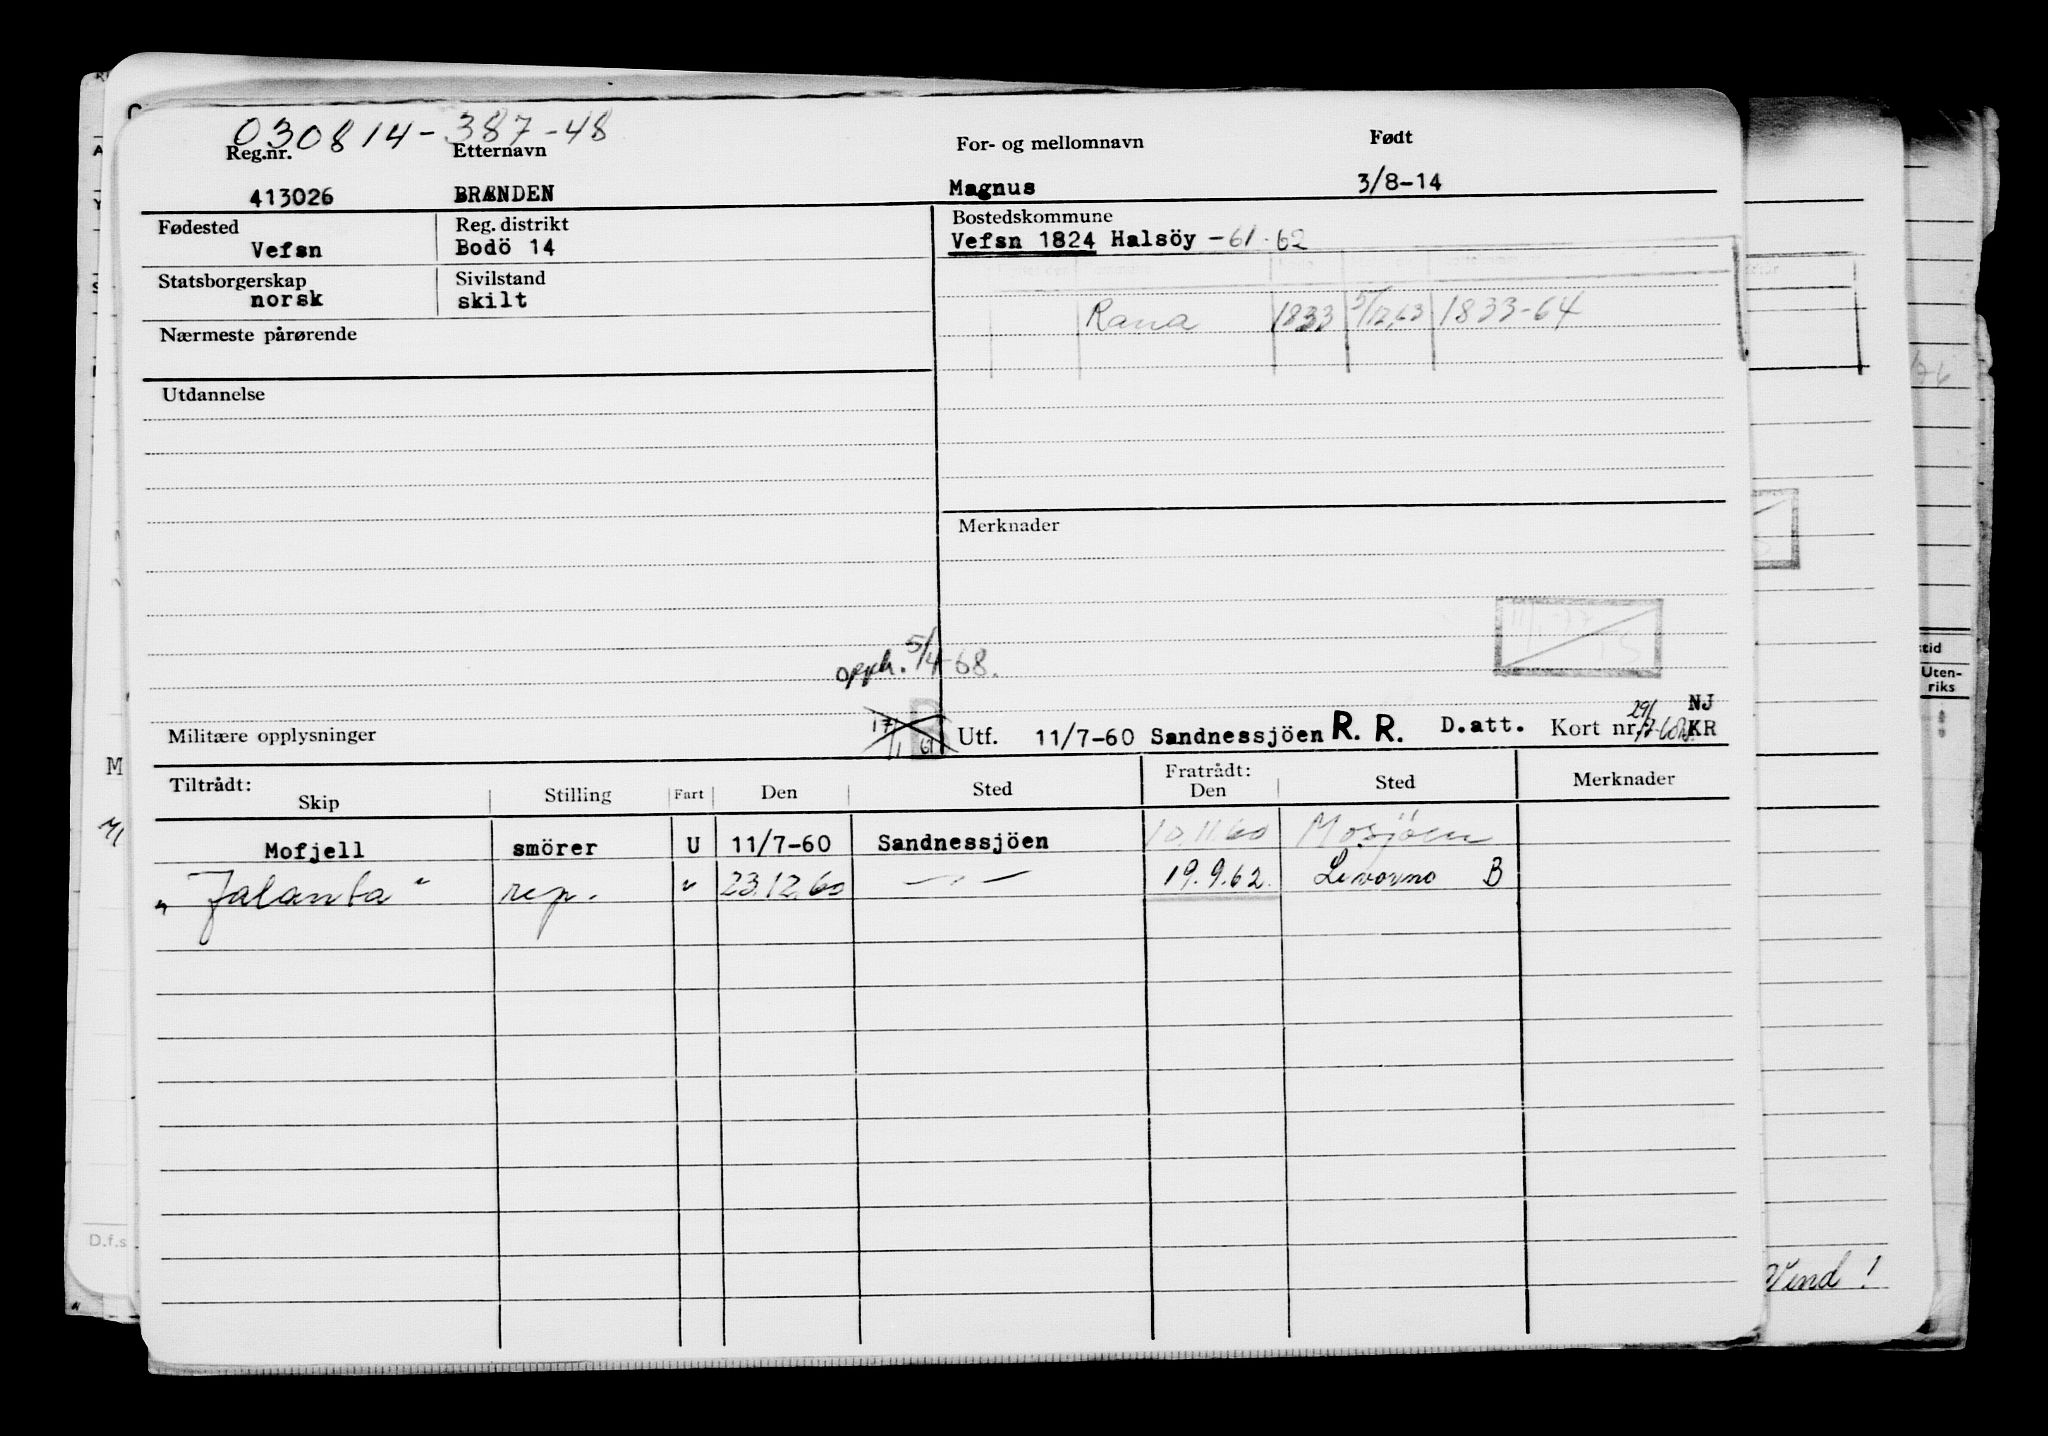 030814-387-48
Reg.nr. Etternavn For- og mellomnavn Født
413026 BRÆNDEN Magnus 3/8-14
Fødested Reg. distrikt Bostedskommune
Vefsn Bodö 14 Vefsn 1824 Halsöy -61-62
Statsborgerskap Sivilstand
norsk skilt
Rana 1833 5/12.63 1833-64
Nærmeste pårørende
Utdannelse
Merknader
opph. 5/4-68.
Militære opplysninger 17/1 61 B Utf. 11/7-60 Sandnessjöen R. R. D.att. Kort nr. NJ
KR
Tiltrådt: Skip Stilling Fart Den Sted Fratrådt: Den Sted Merknader
Mofjell smörer U 11/7-60 Sandnessjöen 10.11.60 Mosjöen
" Jalanta " rep. " 23.12.60 — " — 19.9.62. Livorno B
Vend !
D.f.s
tid
Uten-
riks